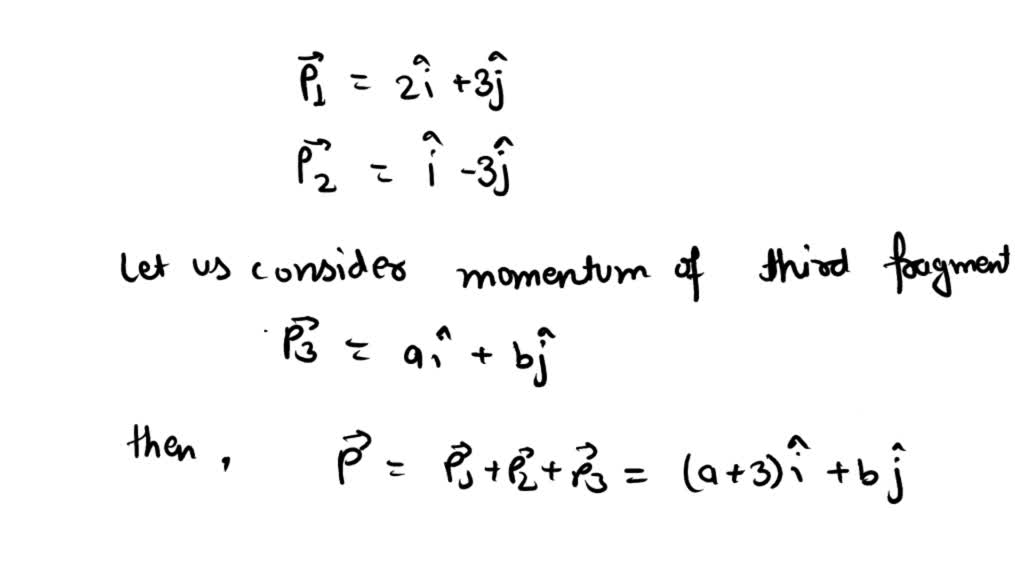 P⃗₁ = 2î + 3ĵ
P⃗₂ = î - 3ĵ
Let us consider momentum of third fragment
P⃗₃ = aî + bĵ
then, P⃗ = P⃗₁ + P⃗₂ + P⃗₃ = (a+3)î + bĵ